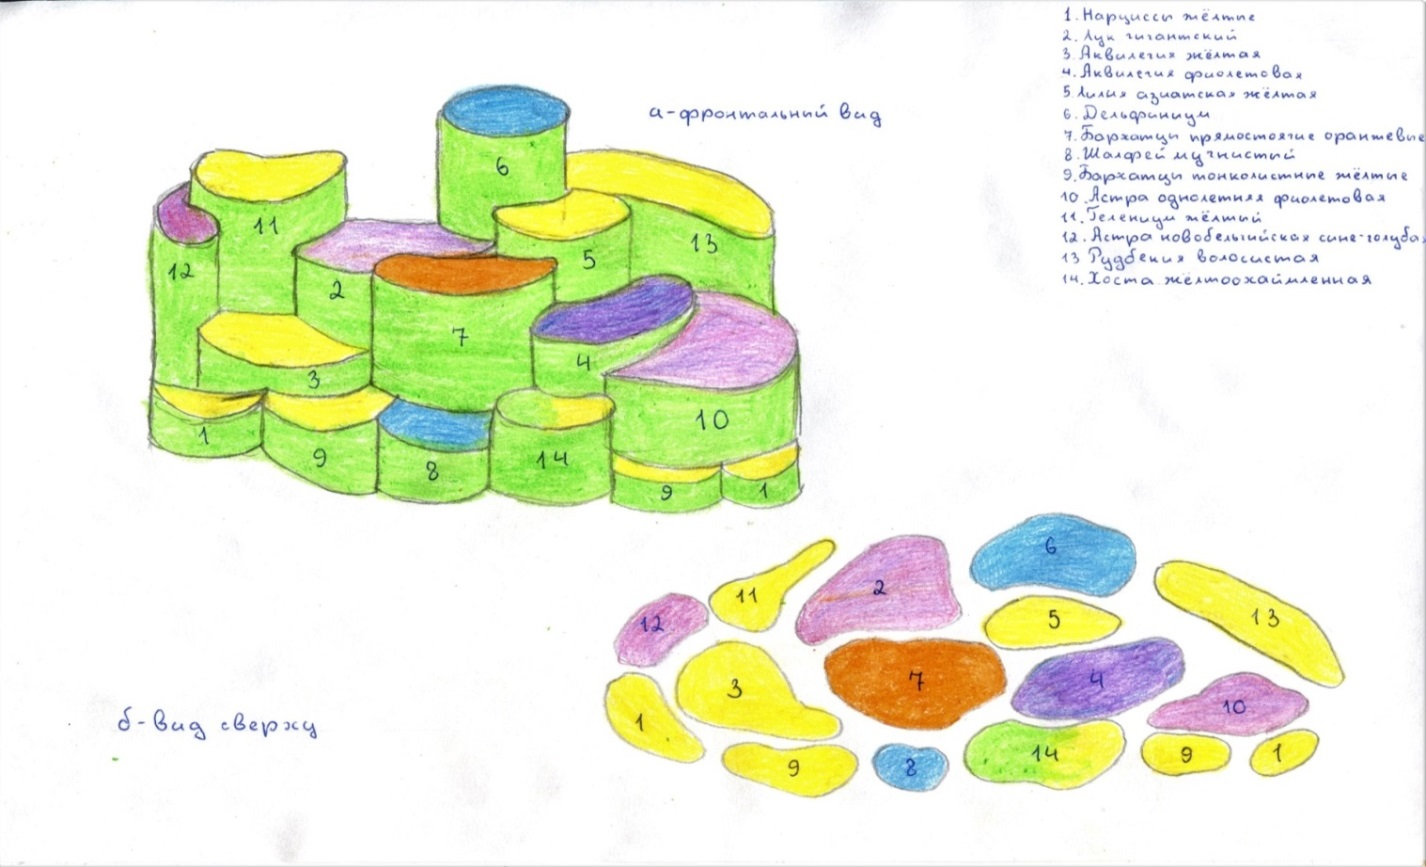 1. Нарциссы жёлтые
2. Лук гигантский
3. Аквилегия жёлтая
4. Аквилегия фиолетовая
5. Лилия азиатская жёлтая
6. Дельфиниум
7. Бархатцы прямостоячие оранжевые
8. Шалфей мучнистый
9. Бархатцы тонколистные жёлтые
10. Астра однолетняя фиолетовая
11. Гелениум жёлтый
12. Астра новобельгийская сине-голуба
13 Рудбекия волосистая
14. Хоста жёлтоокаймленная
а-фронтальный вид
6
11
13
5
12
2
7
4
3
10
1
9
8
14
9
1
б-вид сверху
6
2
11
5
13
12
7
4
3
10
1
14
9
1
9
8